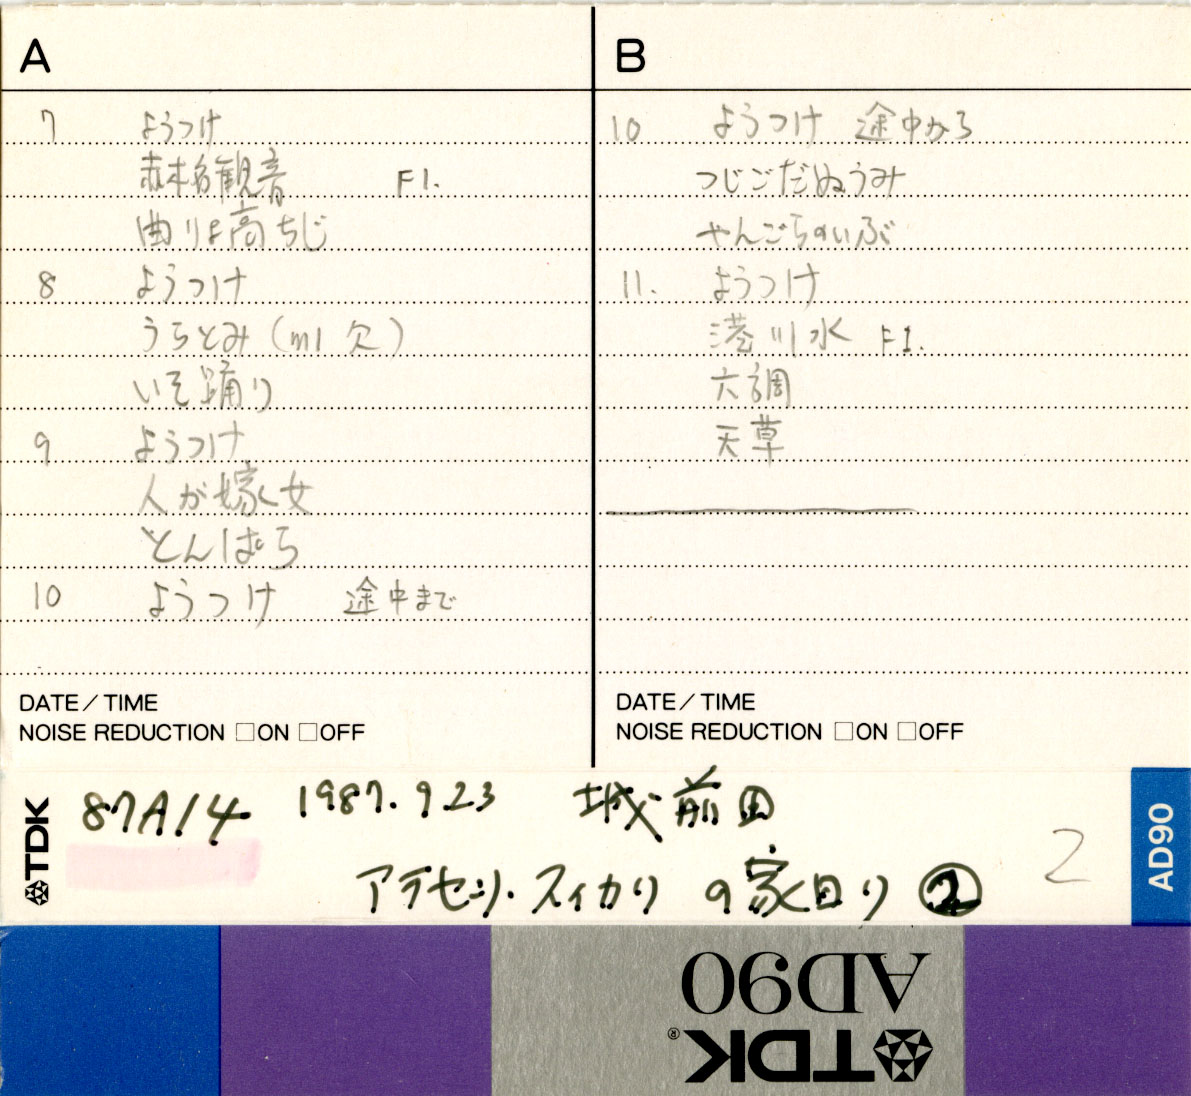 A
7 ようつけ
赤木名観音 F1.
曲りょ高ちじ
8 ようつけ
うらとみ(m1 欠)
いそ踊り
9 ようつけ
人が嫁く女
どんばら
10 ようつけ 途中まで
DATE/TIME
NOISE REDUCTION □ON □OFF
B
10 ようつけ 途中から
つじごだぬうみ
やんごらのいぶ
11. ようつけ
港川水 F1.
六調
天草
DATE/TIME
NOISE REDUCTION □ON □OFF
TDK 87A14 1987.9.23 城前田
アラセツ・スィカリ の家回り ② 2
AD90
AD90
TDK®